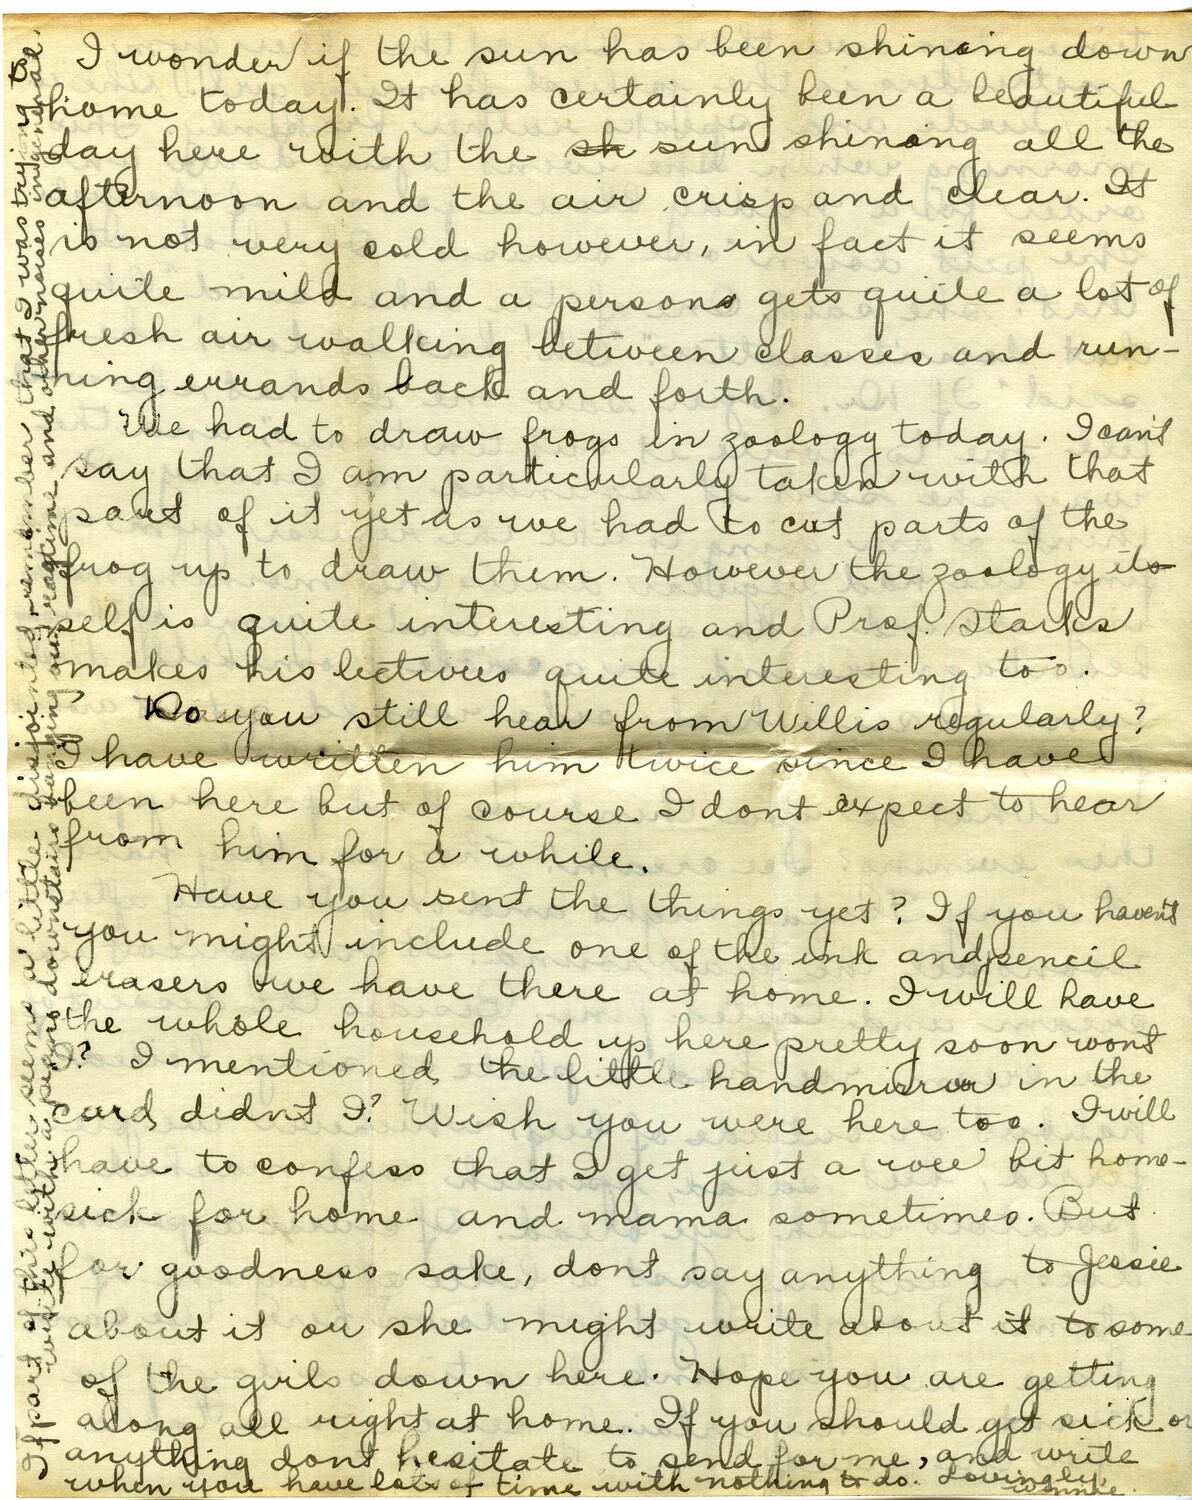 I wonder if the sun has been shining down
home today. It has certainly been a beautiful
day here with the sh sun shining all the
afternoon and the air crisp and clear. It
is not very cold however, in fact it seems
quite mild and a person gets quite a lot of
fresh air walking between classes and run-
ning errands back and forth.
We had to draw frogs in zoology today. I can't
say that I am particularly taken with that
part of it yet as we had to cut parts of the
frog up to draw them. However the zoology it
self is quite interesting and Prof. Starks
makes his lectures quite interesting too.
Do you still hear from Willis regularly?
I have written him twice since I have
been here but of course I dont expect to hear
from him for a while.
Have you sent the things yet? If you haven't
you might include one of the ink and pencil
erasers we have there at home. I will have
the whole household up here pretty soon wont
I? I mentioned the little handmirror in the
card, didnt I? Wish you were here too. I will
have to confess that I get just a wee bit home-
sick for home and mama sometimes. But
for goodness sake, dont say anything to Jessie
about it or she might write about it to some
of the girls down here. Hope you are getting
along all right at home. If you should get sick or
anything dont hesitate to send for me, and write
when you have lots of time with nothing to do. Lovingly
Winnie.
If part of this letter seems a little disjointed, remember that I was trying to
write with a piano downstairs banging out ragtime and other noises in general.